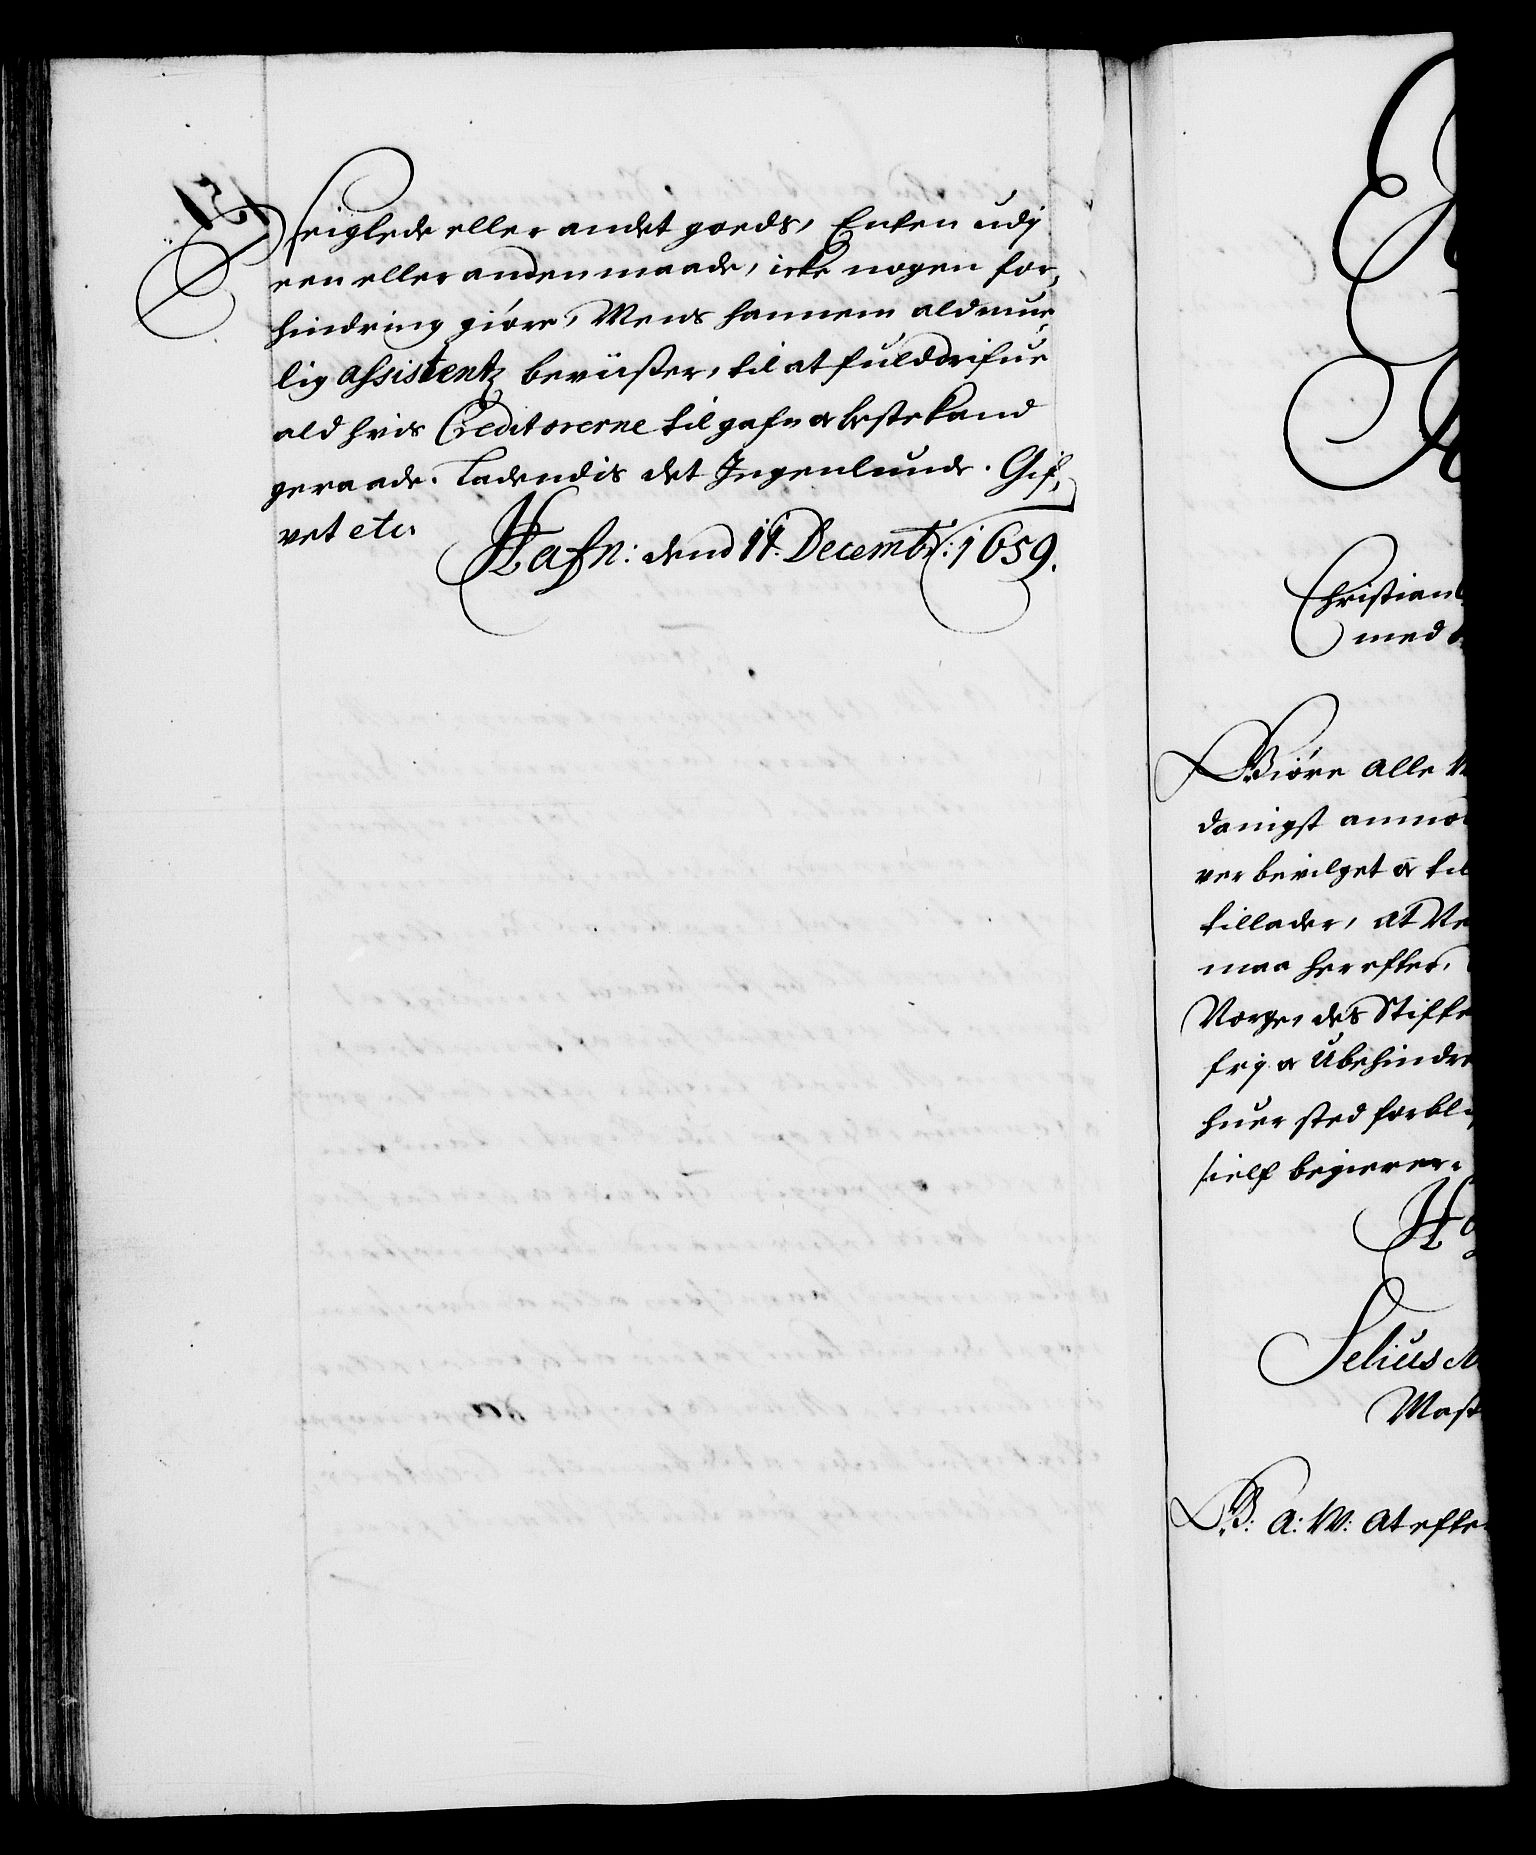 seiglede eller andet goeds, Enten udj
een eller anden maade, icke nogen for,
hindring giöre, Mens hannem ald mue,
lig assistentz beviiser, til at fulddrifue
ald hvis Creditorerne til gafn & beste kand
geraade. Ladendis det Ingenlunde. Gif,
vet etc.
Hafn: dend 11. Decembr: 1659.
Christian
med
Giöre alle
danigst anmo
ver bevilget & til
tillader, at
maa her efter,
Norge, des Stifte
frj & Ubehindre
huer sted forbl
sielf begierer.
Selius
Mast
G: A: W: At efte